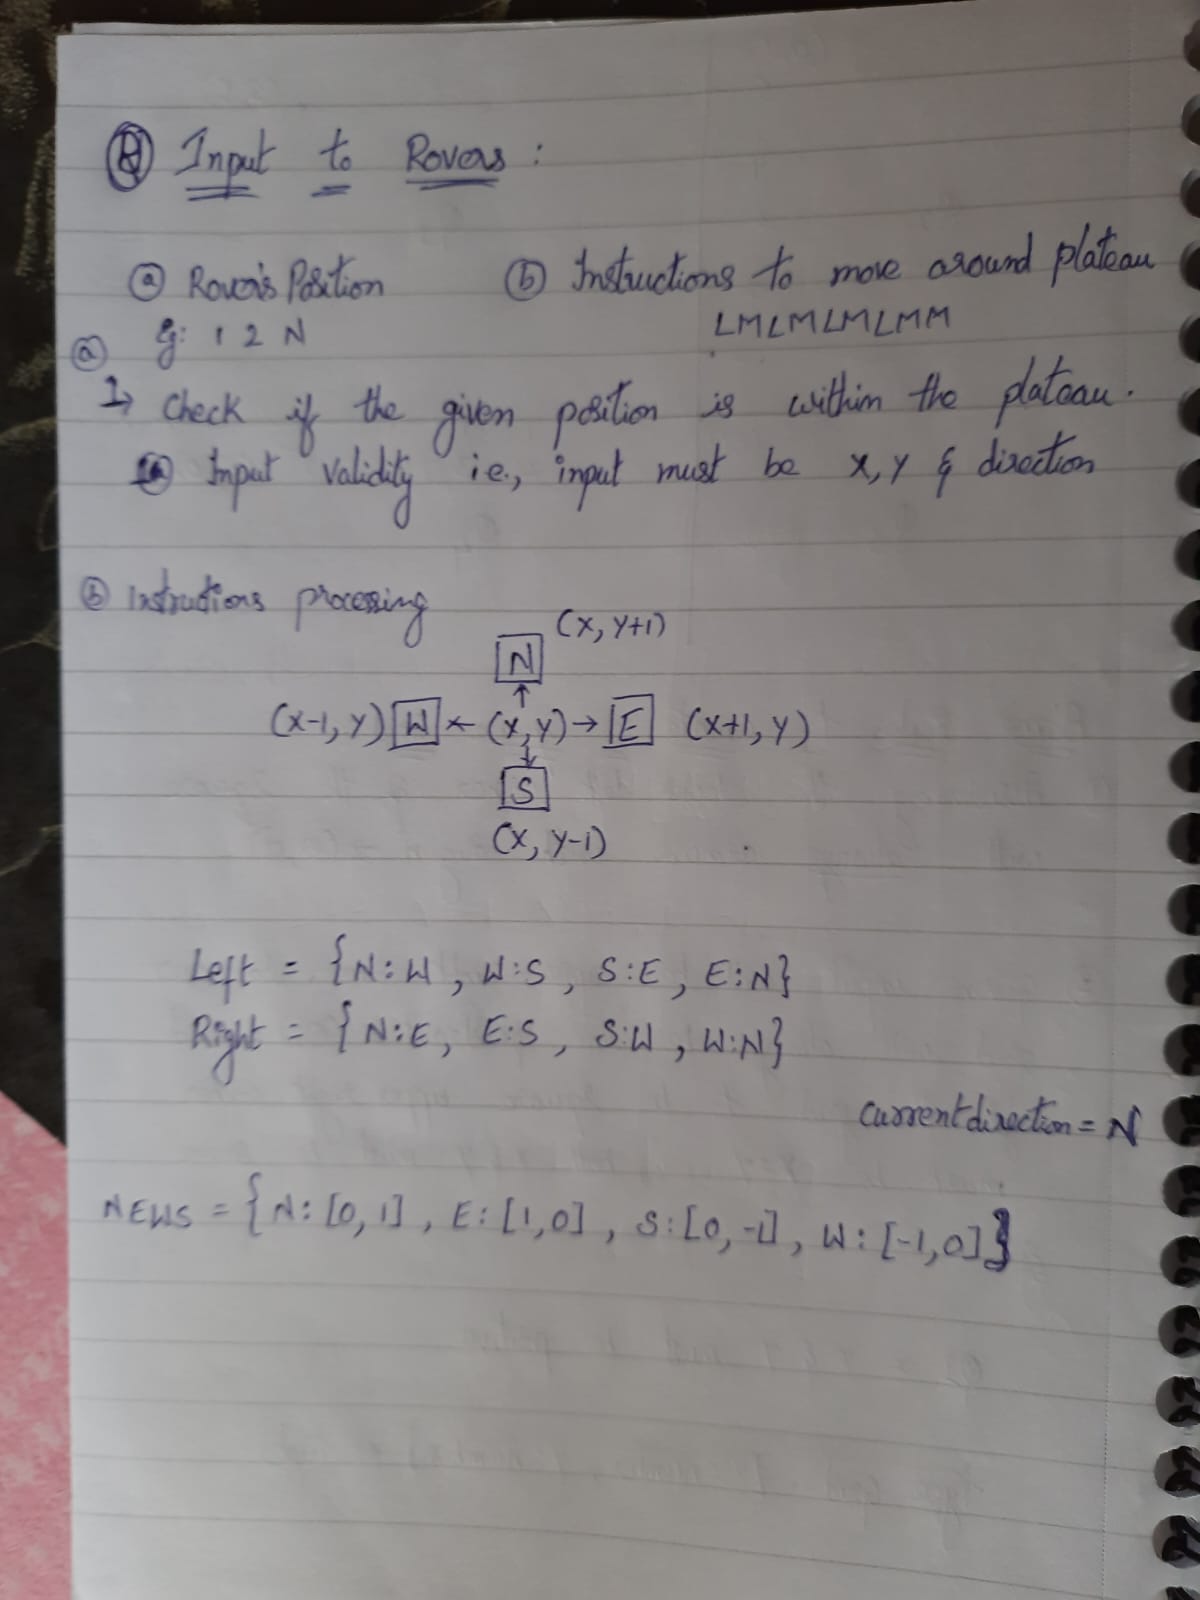 Input to Rovers :
ⓐ Rover's Position ⓑ Instructions to move around plateau
Eg: 1 2 N LMLMLMLMM
ⓐ
1→ Check if the given position is within the plateau.
ⓐ Input validity i.e., input must be x, y & direction
ⓑ Instructions processing
(x, y+1)
N
(x-1, y) W ← (x, y) → E (x+1, y)
S
(x, y-1)
Left = {N:W, W:S, S:E, E:N}
Right = {N:E, E:S, S:W, W:N}
Current direction = N
NEWS = {N: [0, 1], E: [1,0], S:[0, -1], W: [-1,0]}